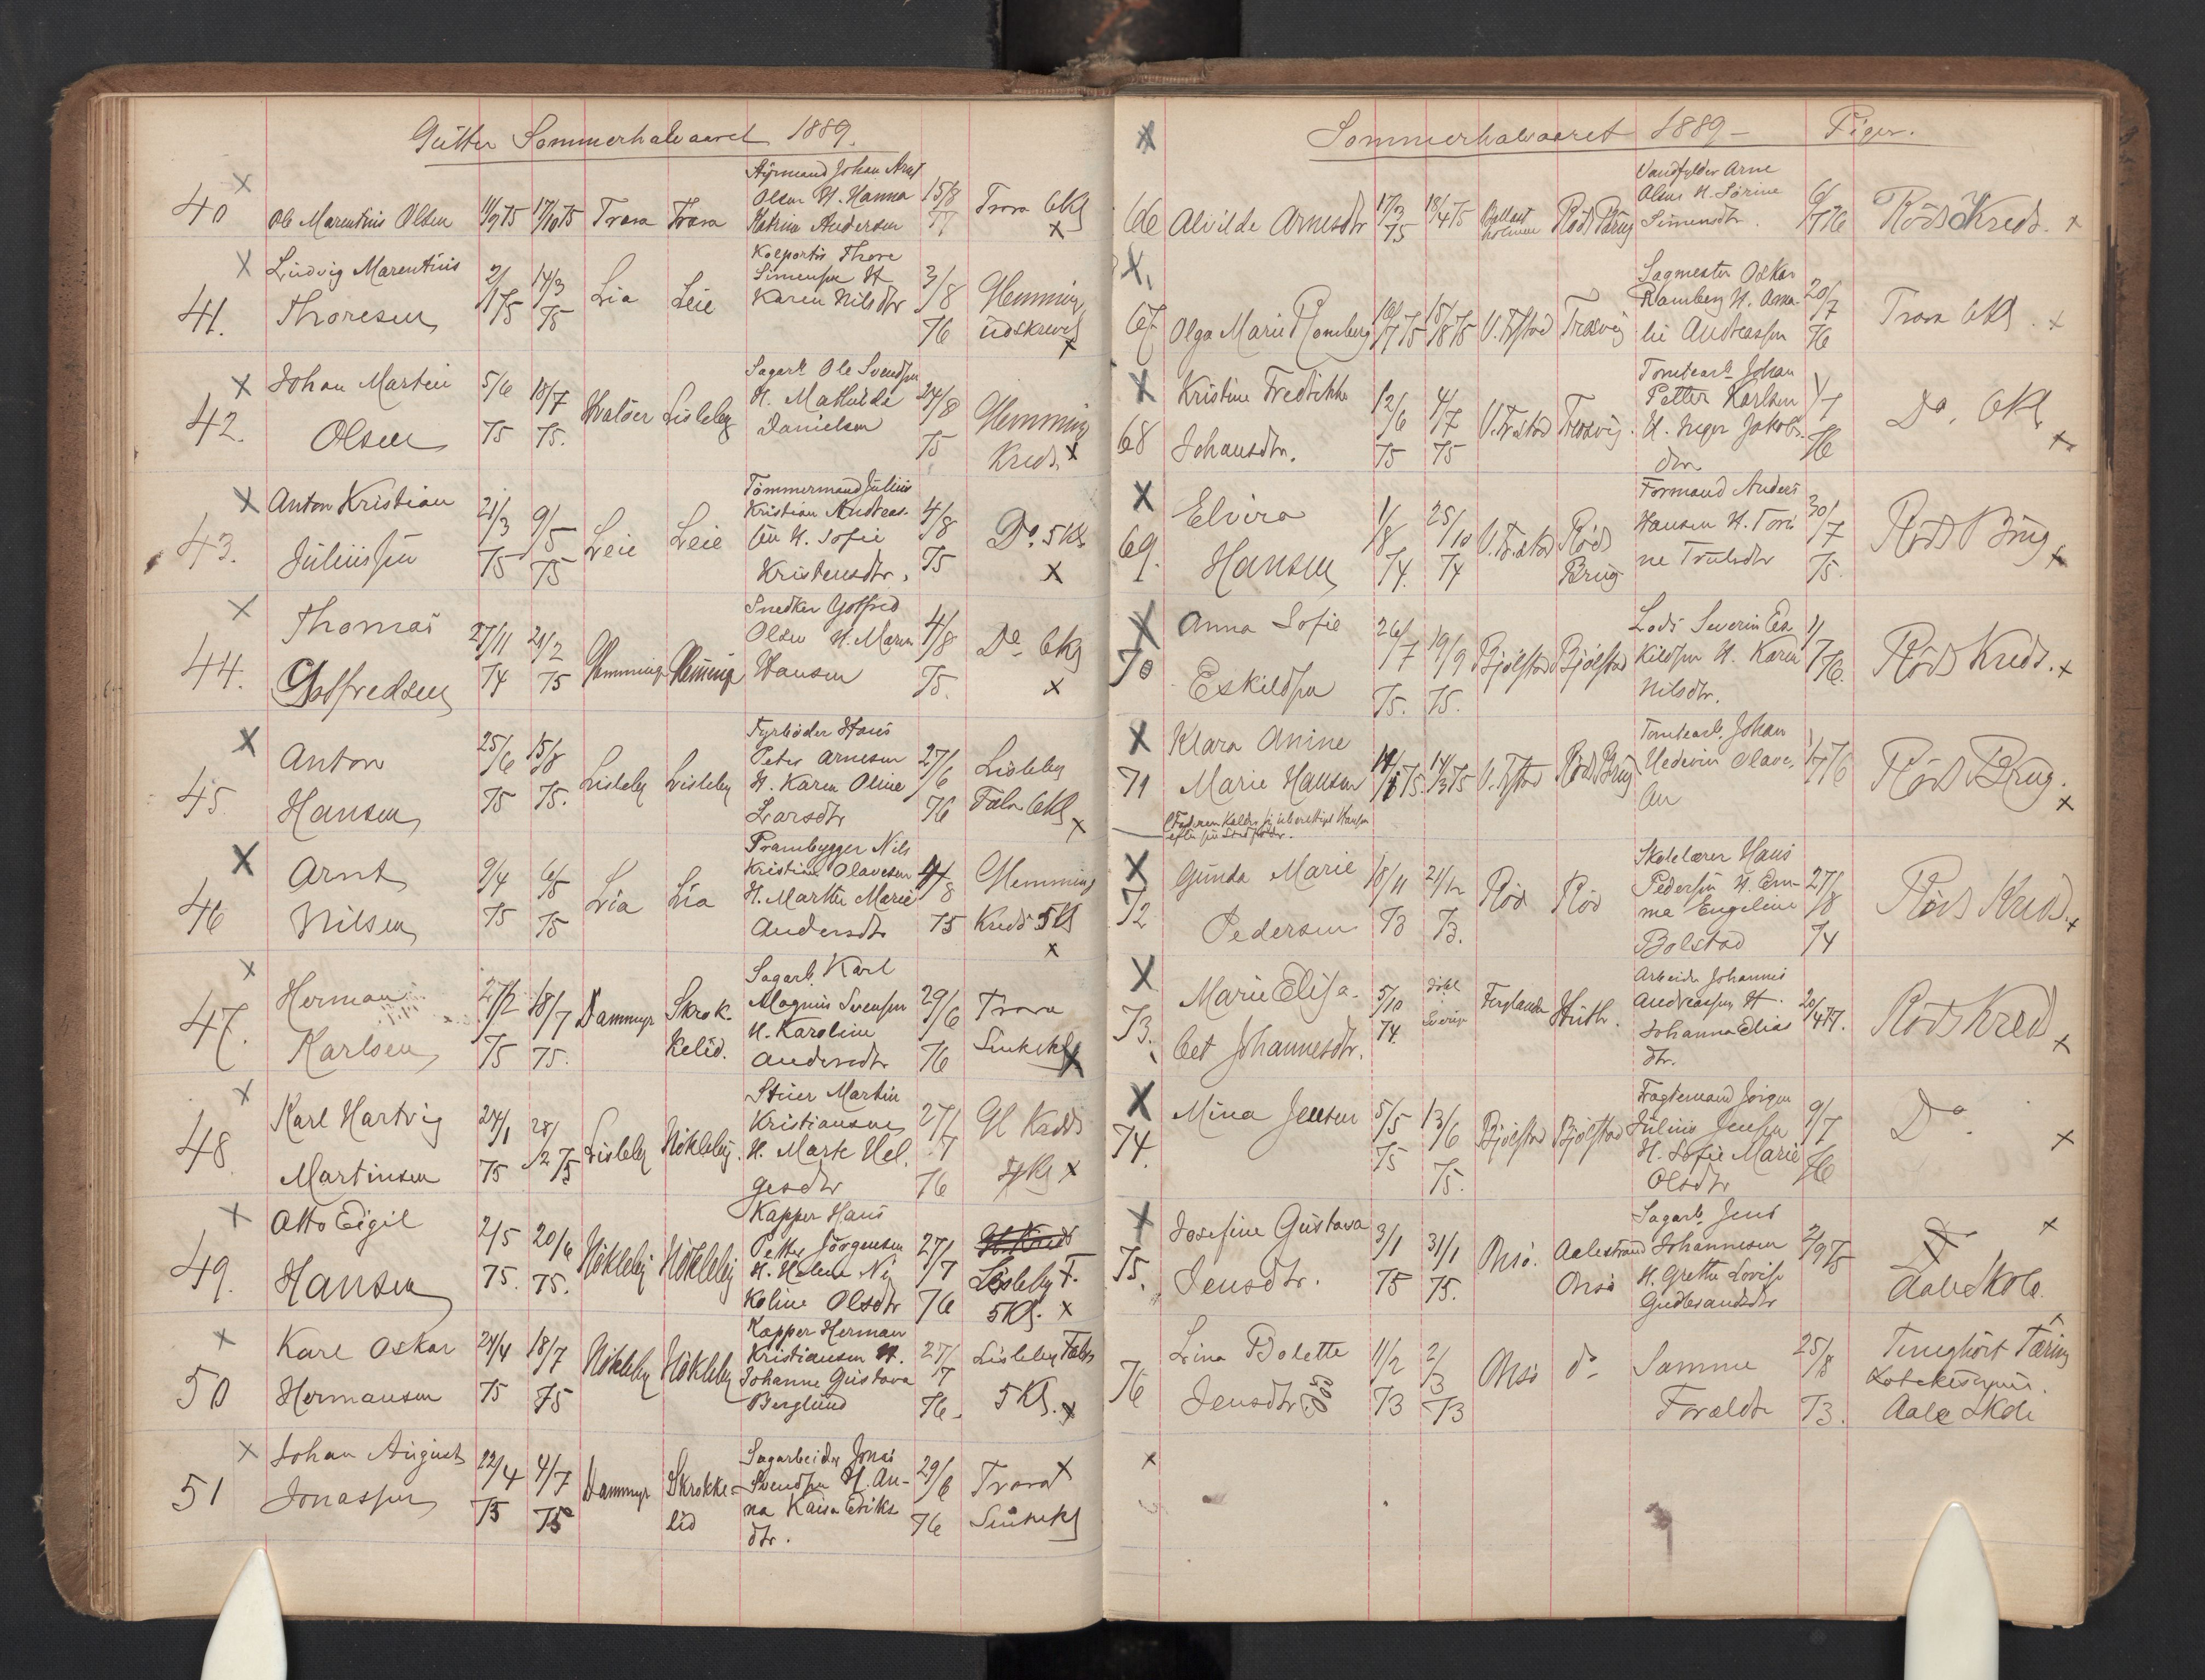 Gutter Sommerhalvaaret 1889.
40 Ole Marentius Olsen 11/9 75 17/10 75 Trara Trara
Olsen H. Hanna
Katrine Andersen
15/8 77 Trara 6Kl x
41. Ludvig Marentius
Thoresen 2/1 75 14/3 75 Lia Leie
Kolportør Thore
Simensen H
Karen Nilsdtr
3/8 76 Glemming
udskrevet x
42. Johan Martin
Olsen 5/6 75 18/7 75. Hvaløer Lisleby
Sagarb Ole Svendsen
H. Mathilde
Danielsen
24/8 75 Glemming
Kreds x
43. Anton Kristian
Juliussen 21/3 75 9/5 75 Leie Leie
Tømmermand Julius
Kristian Andreas-
sen H. Sofie
Kristensdtr.
4/8 75 Do. 5Kl x
44. Thomas
Gotfredsen 27/11 74 21/2 75 Glemminge Glemminge
Snedker Gotfred
Olsen H. Maren
Hansen
4/8 75. Do 6Kl x
45 Anton
Hansen 25/6 75 15/8 75. Lisleby Lisleby
Fyrbøder Hans
Peter Arnesen
H. Karen Oline
Larsdtr
27/6 76 Lisleby
Fabr. 6Kl x
46 Arnt
Nilsen 9/4 75 6/5 75 Lia Lia
Prambygger Nils
Kristian Olavesen
H. Marthe Marie
Andersdtr
4/8 75 Glemming
Kreds 5Kl x
47. Herman
Karlsen 27/2 75 18/7 75. Dammyr Skrok-
kelid.
Sagarb. Karl
Magnus Svensen
H. Karoline
Andersdtr
29/6 76 Trara
x
48. Karl Hartvig
Martinsen 24/1 75 28/2 75 Lisleby Nökleby.
Stuer Martin
Kristiansen
H. Marte Hel-
gesdtr
27/7 76 Gl Kreds
x
49. Otto Eigil
Hansen 2/5 75. 20/6 75. Nökleby Nökleby
Kapper Hans
Petter Jörgensen
H. Helene Ni-
koline Olsdtr
27/7 76 Gl. Kreds
Lisleby F.
5Kl. x
50 Karl Oskar
Hermansen 24/4 75 18/7 75 Nökleby Nökleby
Kapper Herman
Kristiansen H.
Johanne Gustava
Berglund
27/7 76. Lisleby Fabr
5Kl. x
51 Johan August
Jonassen 22/4 75 4/7 75 Dammyr Skrokke-
lid
Sagarbeider Jonas
Svendsen H. An-
na Kaisa Eriks
dtr.
29/6 76 Trara x
Sommerhalvaaret 1889 - Piger.
66 Alvilde Arnesdtr 17/3 75 18/4 75 Röds Brug
Arne
Olsen H. Sörine
Simensdtr.
6/7 76 Röds Kreds. x
67. Olga Marie Ramberg 10/7 75 15/8 75 V. Frstad Trosvig
Sagmester Oskar
Ramberg H. Ama-
lie Andreassen
20/7 76 Trara 6Kl. x
68 Kristine Fredrikke
Johansdtr. 12/6 75 4/7 75 V. Frstad Trosvig.
Tomtearb. Johan
Petter Karlsen
H. Inger Jakobs-
dtr
1/7 76 Do. 6Kl x
69. Elvira
Hansen 1/8 74. 25/10 74 V. Fr.stad Röds
Brug
Formand Anders
Hansen H. Tori-
ne Trulsdtr
30/7 75. Röds Brug x
70 Anna Sofie
Eskildsen 26/7 75. 19/9 75. Bjölstad Bjölstad
Lods Severin Es
kildsen H. Karen
Nilsdtr.
1/7 76. Röds Kreds. x
71 Klara Anine
Marie Hansen 14/3 75 V. Frstad Röds Brug
Tomtearb. Johan
Olave-
sen
1/7 76 Röds Brug. x
72 Gunda Marie
Pedersen 18/11 73 21/12 73. Rød Rød
Skolelærer Hans
Pedersen H. Em-
ma Engeline
Bolstad
27/8 74 Röds Kreds. x
73. Marie Elisa-
bet Johannesdtr. 5/10 74
Arbeider Johannes
Andreassen H.
Johanna Elias
dtr.
20/4 77. Röds Kreds x
74. Mina Jensen 5/5 75 13/6 75. Bjölstad Bjölstad
Fragtemand Jörgen
Julius Jensen
H. Sofie Marie
Olsdtr
9/7 76 Do x
75. Josefine Gustava
Jensdtr. 3/1 75 31/1 75. Onsö. Aalestrand
Onsö
Sagarb. Jens
Johannesen
H. Grethe Lovise
Gudbrandsdtr
2/9 75 Do x
Aale Skole.
76 Lina Bolette
Jensdtr. 11/2 73 2/3 73 Onsö do
Samme
Forældre
25/8 73.
Aale Skole